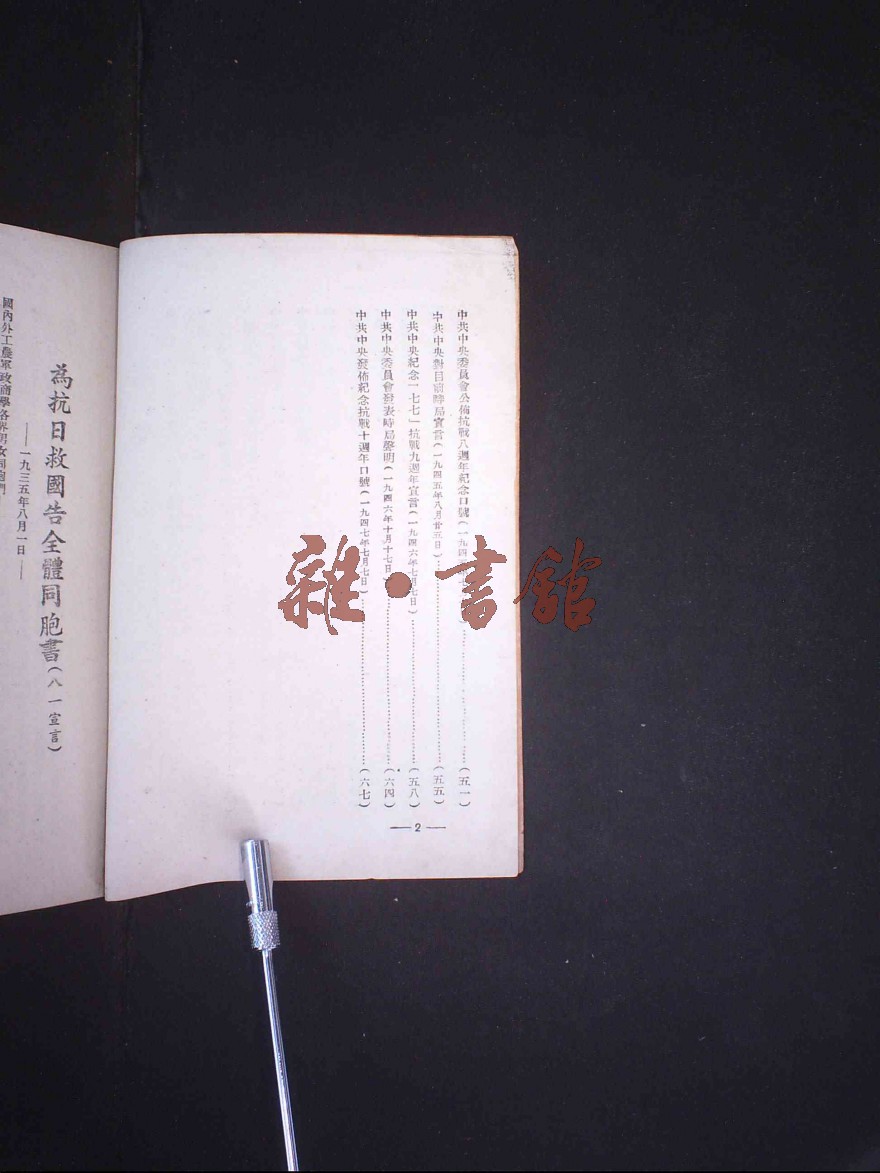 中共中央委員會公佈抗戰八週年紀念口號(一九四
(五一)
中共中央對目前時局宣言(一九四五年八月廿五日)…………(五五)
中共中央紀念「七七」抗戰九週年宣言(一九四六年七月七日)…………(五八)
中共中央委員會發表時局聲明(一九四六年十月十七日)…………(六四)
中共中央發佈紀念抗戰十週年口號(一九四七年七月七日)…………(六七)
—2—
為抗日救國告全體同胞書(八一宣言)
——一九三五年八月一日——
國內外工農軍政商學各界男女同胞們
雜·書館